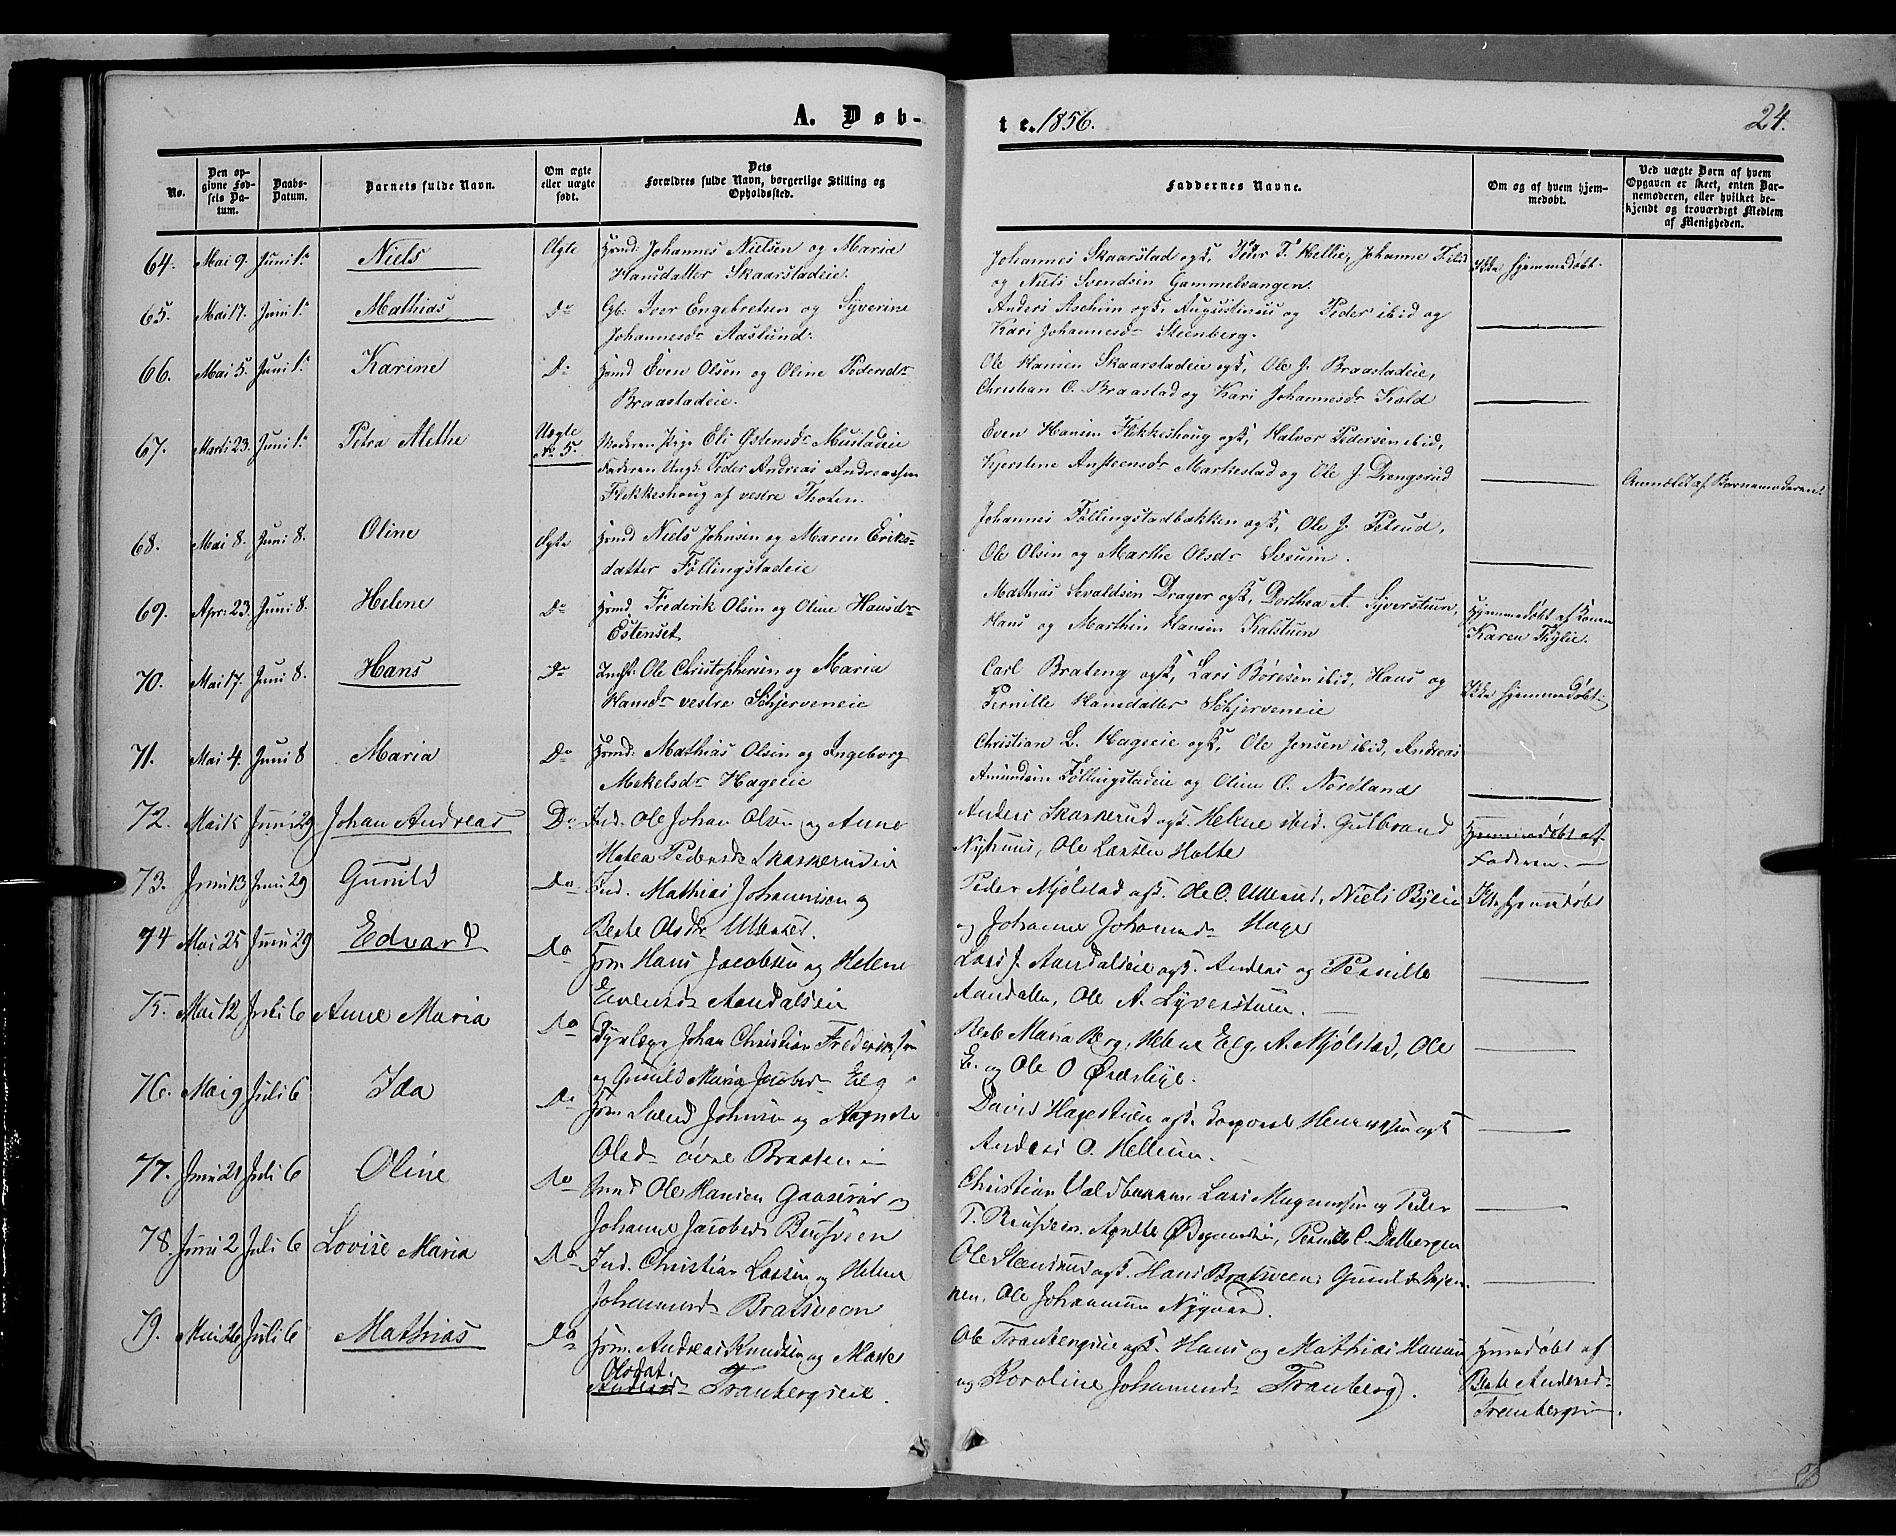 A. Døb-
te. 1856.
24.
No.
Den op-
givne Fød-
sels Da-
tum.
Daabs-
Datum.
Barnets fulde Navn.
Om ægte
eller uægte
født.
Dets
Forældres fulde Navn, borgerlige Stilling og
Opholdssted.
Faddernes Navne.
Om og af hvem hjem-
medøbt.
Ved uægte Børn af hvem
Opgaven er skeet, enten Bar-
nemoderen, eller hvilket be-
kjendt og troværdigt Medlem
af Menigheden.
64. Mai 9. Juni 1. Niels Ægte Hmd. Johannes Nielsen og Maria
Hansdatter Skaarstadeie.
Johannes Skaarstad ogs, Peder T. Hellie, Johanne ibid
og Niels Svendsen Gammelvangen.
Ikke hjemmedøbt.
65. Mai 17. Juni 1. Mathias Do Gb. Iver Engebretsen og Syverine
Johannesdr Aaslund.
Anders Ascheim ogs, Augustinus og Peder ibid og
Kari Johannesdr Steenberg.
66. Mai 5. Juni 1. Karine Do Hmd Even Olsen og Oline Pedersdr
Braastadeie.
Ole Hansen Skaarstadeie ogs, Ole J. Braastadeie,
Christian O. Braastad og Kari Johannesdr Kold
67. Marts 23. Juni 1. Petra Alethe Uægte No 5. Moderen Pige Eli Østensdr Mustadeie
Faderen Ungk. Peder Andreas Andreassen
Flekkeshoug af vestre Thoten.
Even Hansen Flekkeshoug ogs, Halvor Pedersen ibid,
Kjerstine Ansteensdr Markestad og Ole J. Drengsrud
Anmeldt af Barnemoderen.
68. Mai 8. Juni 8. Oline Ægte Hmd Niels Johnsen og Maren Eriks-
datter Føllingstadeie
Johannes Føllingstadbakken ogs, Ole J. Petsud,
Ole Olsen og Marthe Olsdr Sveum.
69. Apr. 23. Juni 8. Helene Do Hmd. Frederik Olsen og Oline Hansdr
Estenset
Mathias Sevaldsen Drager ogs, Dorthea A. Syverstuen,
Hans og Marthin Hansen Kalstuen
Hjemmedøbt af Konen
Karen Thylie.
70. Mai 17. Juni 8. Hans Do Indst. Ole Christophersen og Maria
Hansdr vestre Schjerveneie
Carl Brateng ogs, Lars Børesen ibid, Hans og
Pernille Hansdatter Schjerveneie
Ikke hjemmedøbt
71. Mai 4. Juni 8 Maria Do Hmd. Mathias Olsen og Ingeborg
Mekelsdr Hageeie
Christian L. Hageeie ogs, Ole Jensen ibid, Andreas
Amundsen Føllingstadeie og Oline O. Nordland
72. Mai Juni 29 Johan Andreas Do Ind. Ole Johan Olsen og Anne
Matea Pedersdr Skaskerudeie
Anders Skaskerud ogs. Helene ibid. Gulbrand
Nyhuus, Ole Larsen Holte
Hjemmedøbt af
Faderen.
73. Juni 13 Juni 29 Gunild Do Ind. Mathias Johannesen og
Berte Olsdr Ullensed.
Peder Mjølstad ogs. Ole O. , Niels Bylie
og Johanne Johannesdr Hage
Ikke hjemmedøbt
74 Mai 25 Juni 29 Edvard Do Hmd. Hans Jacobsen og Helene
Evensdr Aandalseie
Lars J. Aandalseie ogs. Anders og Pernille
Aandalen, Ole A. Syverstuen.
75. Mai 12 Juli 6 Anne Maria Do Dyrlæge Johan Christian Frederiksen
og Gunild Maria Jacobsdr Elg
Berte Maria Berg, Helene Elg, A. Mjølstad, Ole
E. og Ole O Øverbye.
76. Mai 9 Juli 6 Ida Do Hmd. Svend Johnsen og Agnete
Olsdr øvre Braatenie
David Hagestuen ogs. Corporal Henriksen ogs
Anders O. Hellum.
77. Juni 21 Juli 6 Oline Do Hmd Ole Hansen Gaaserud og
Johanne Jacobsdr Reusveen
Christian Lars Magnussen og Peder
T. Reusveen, Agnette Ødegaarden, Pernille C. Dalbergen
78. Juni 2 Juli 6 Lovise Maria Do Ind. Christian Larsen og Helene
Johannesdr Bratsveen
Ole ogs. Hans Bratsveen, Gunild Skjen-
nen, Ole Johannesen Nygaard.
79. Mai 26 Juli 6 Mathias Do Hmd. Andreas Knudsen og Marte
Olsdat.
Andersdr Tranbergseie.
Ole Tranbergseie ogs. Hans og Mathias Hansen
og Karoline Johannesdr Tranberg.
Hjemmedøbt af
Berte Andersdr
Tranbergseie.